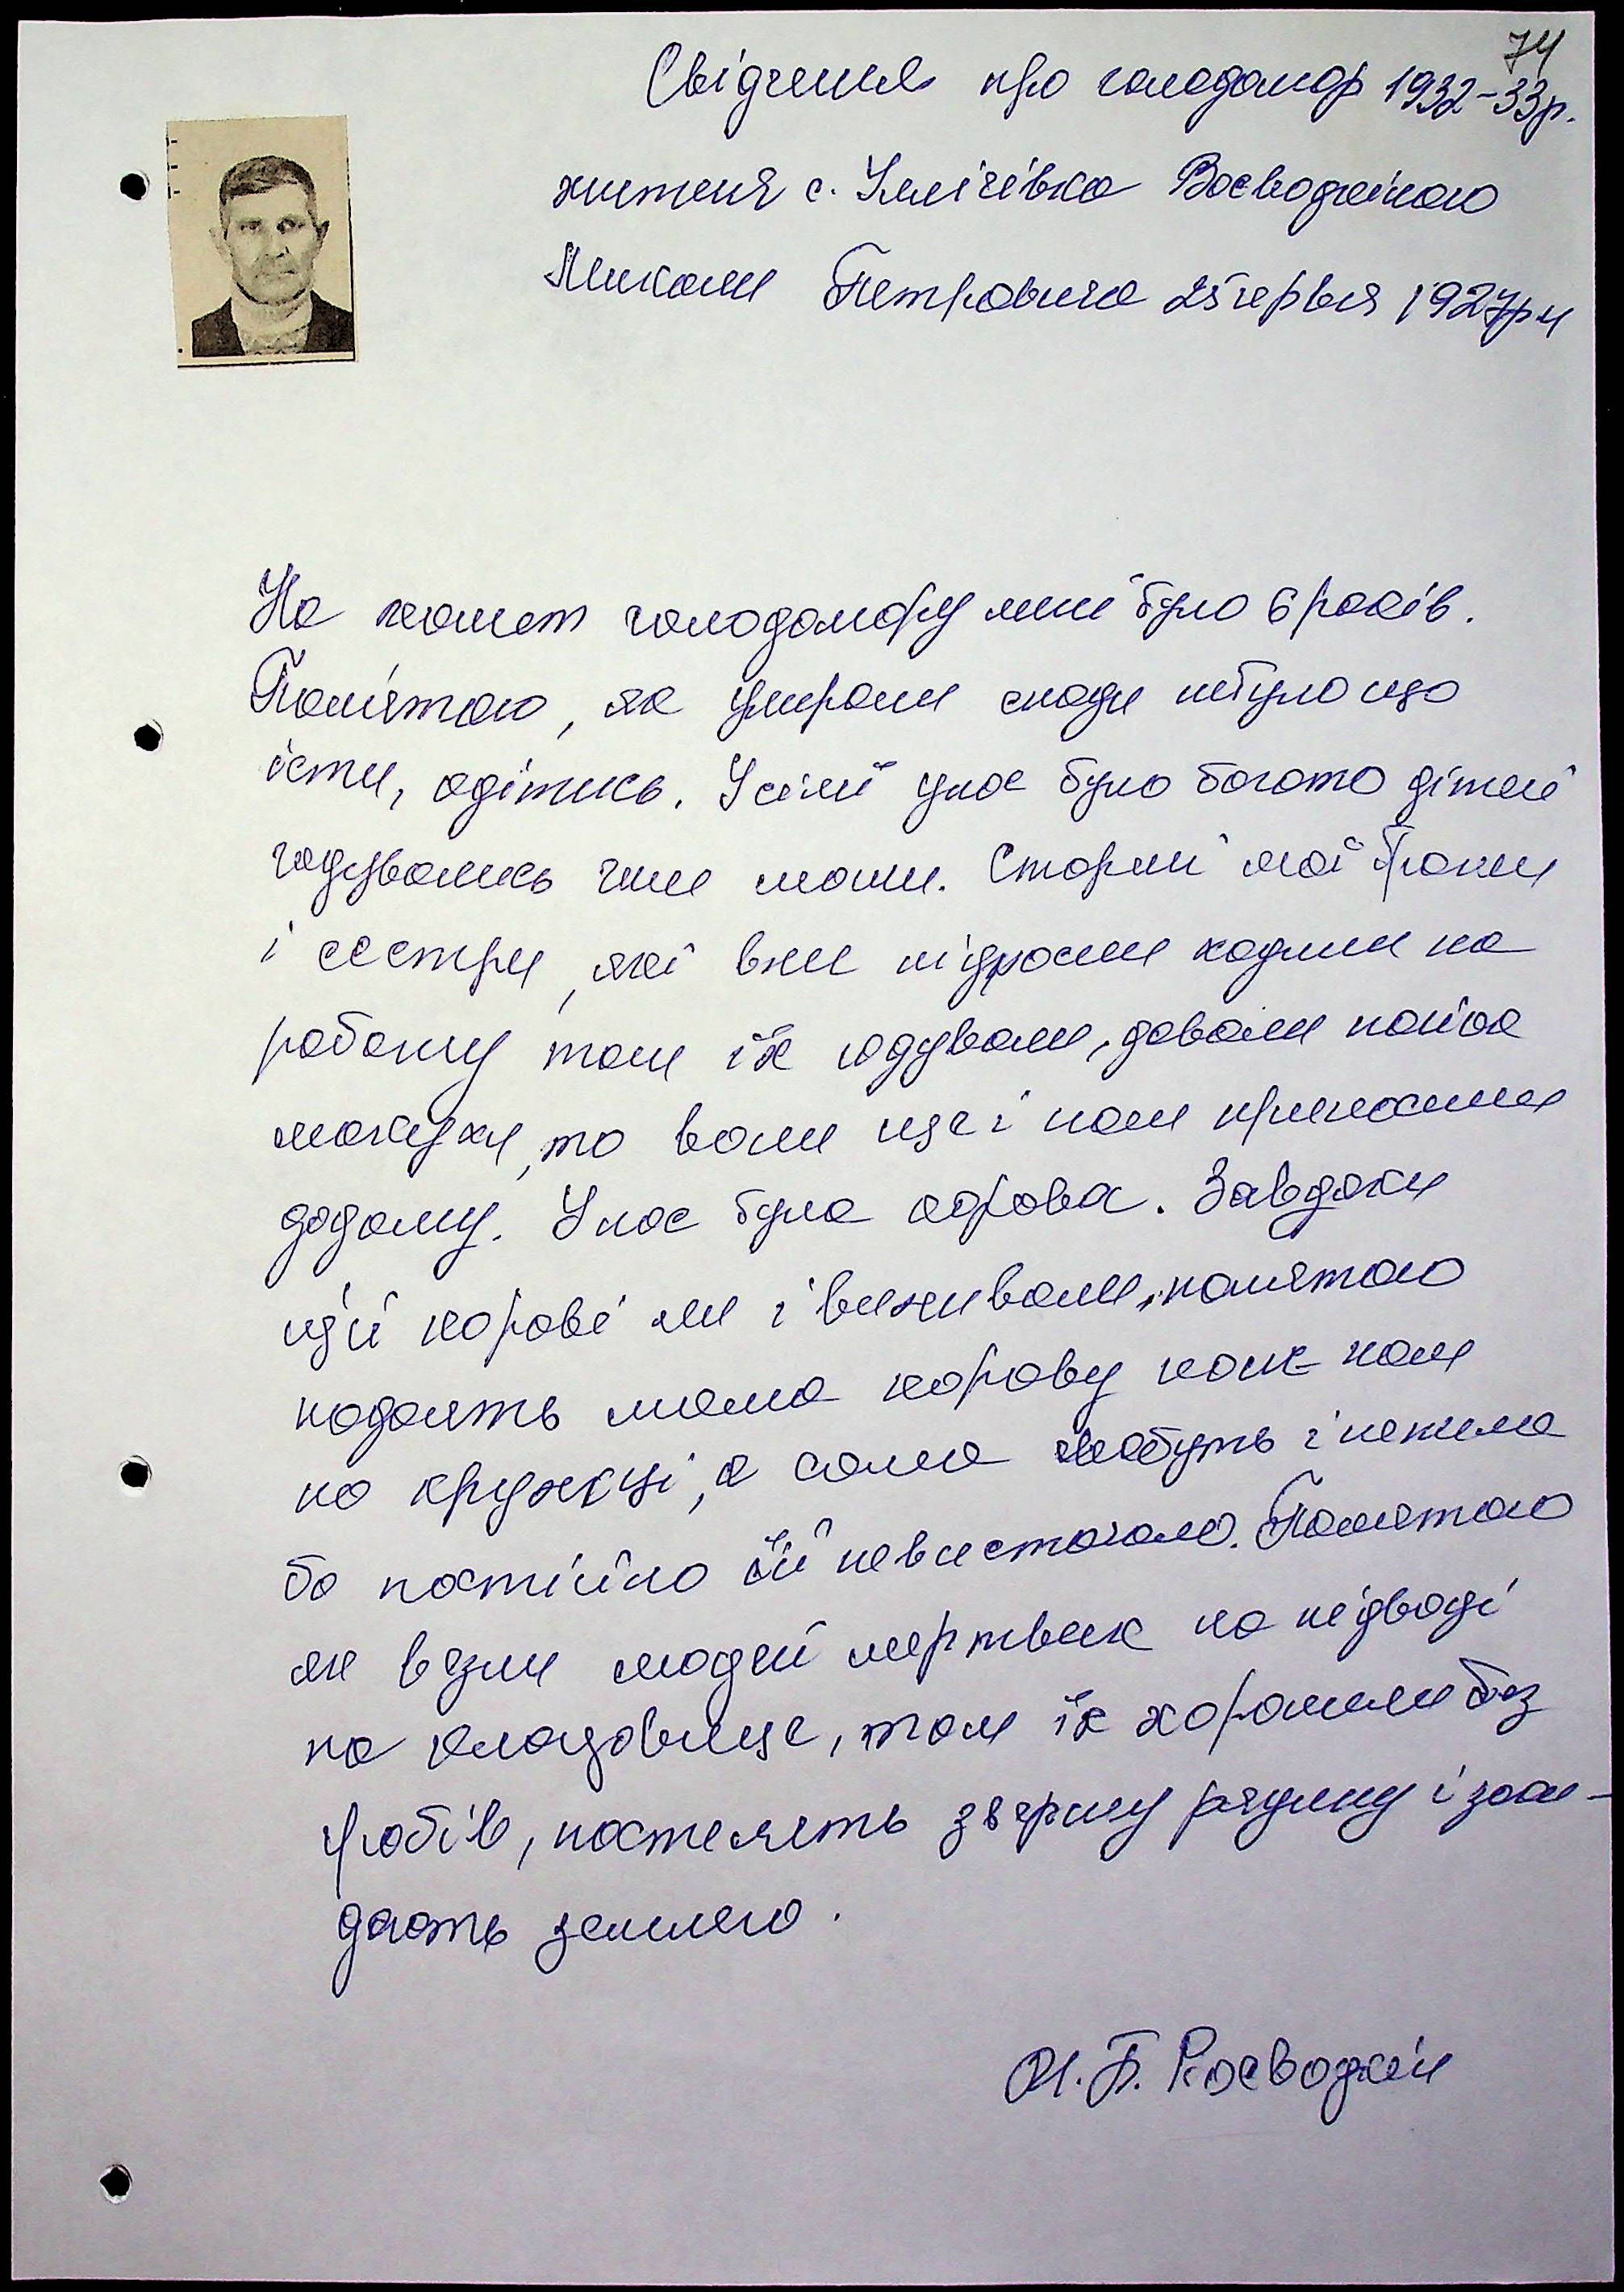 74
Свідчення про голодомор 1932-33р.
жителя с. Іллічівка Воєводкіною
Миколи Петровича 25 червня 1927р н
На момент голодомору мені було 6 років.
Пам'ятаю, як умирали люди небуло що
їсти, одітись. У сімї унас було багато дітей
годувались чим мали. Старші мої брати
і сестри, які вже підросли ходили на
роботу там їх годували, давали пайок
макухи, то вони ще і нам приносили
додому. У нас була корова. Завдяки
цій корові ми і виживали, памятаю
подоять мама корову нам
по кружці, а сама мабуть і непила
бо постійно їй невистачало. Памятаю
як везли людей мертвих на підводі
на кладовище, там їх хоронили без
гробів, постелять зверху рядину і заки-
дають землею.
М. П. Воєводкін